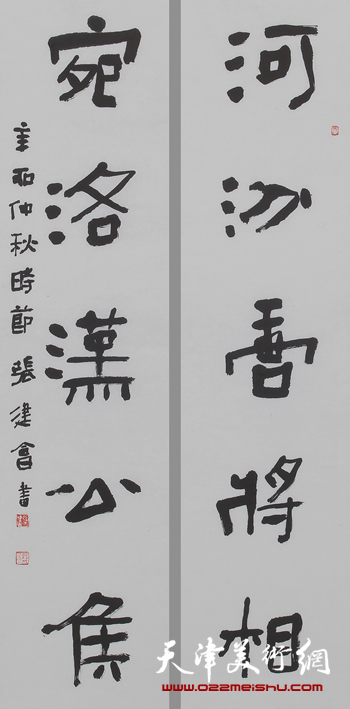 河汾唐將相
宛洛漢公侯
辛卯仲秋時節張建會書
天津美術網
www.022meishu.com